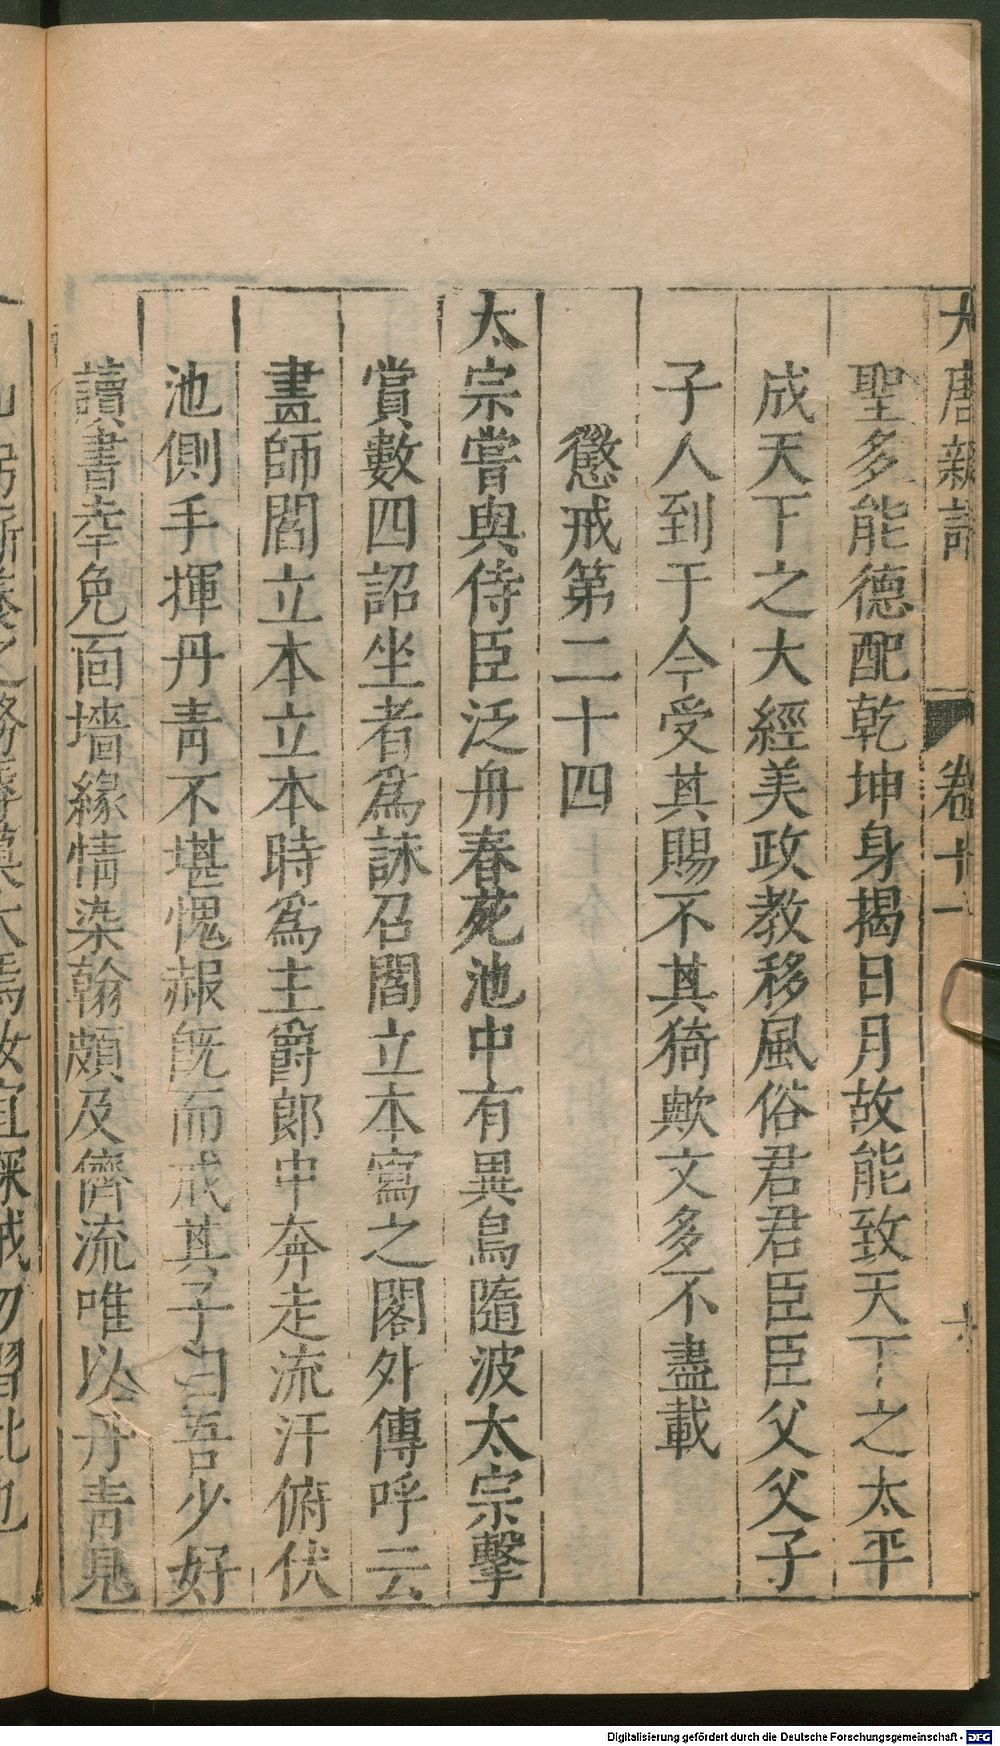 大唐新語 卷十一
聖多能德配乾坤身揭日月故能致天下之太平
成天下之大經美政教移風俗君君臣臣父父子
子人到于今受其賜不其猗歟文多不盡載
懲戒第二十四
太宗嘗與侍臣泛舟春苑池中有異鳥隨波太宗擊
賞數四詔坐者為詠召閻立本寫之閣外傳呼云
畫師閻立本立本時為主爵郎中奔走流汗俯伏
池側手揮丹青不堪愧赧既而戒其子曰吾少好
讀書幸免面墻緣情染翰頗及儕流唯以丹青見
Digitalisierung gefördert durch die Deutsche Forschungsgemeinschaft - DFG